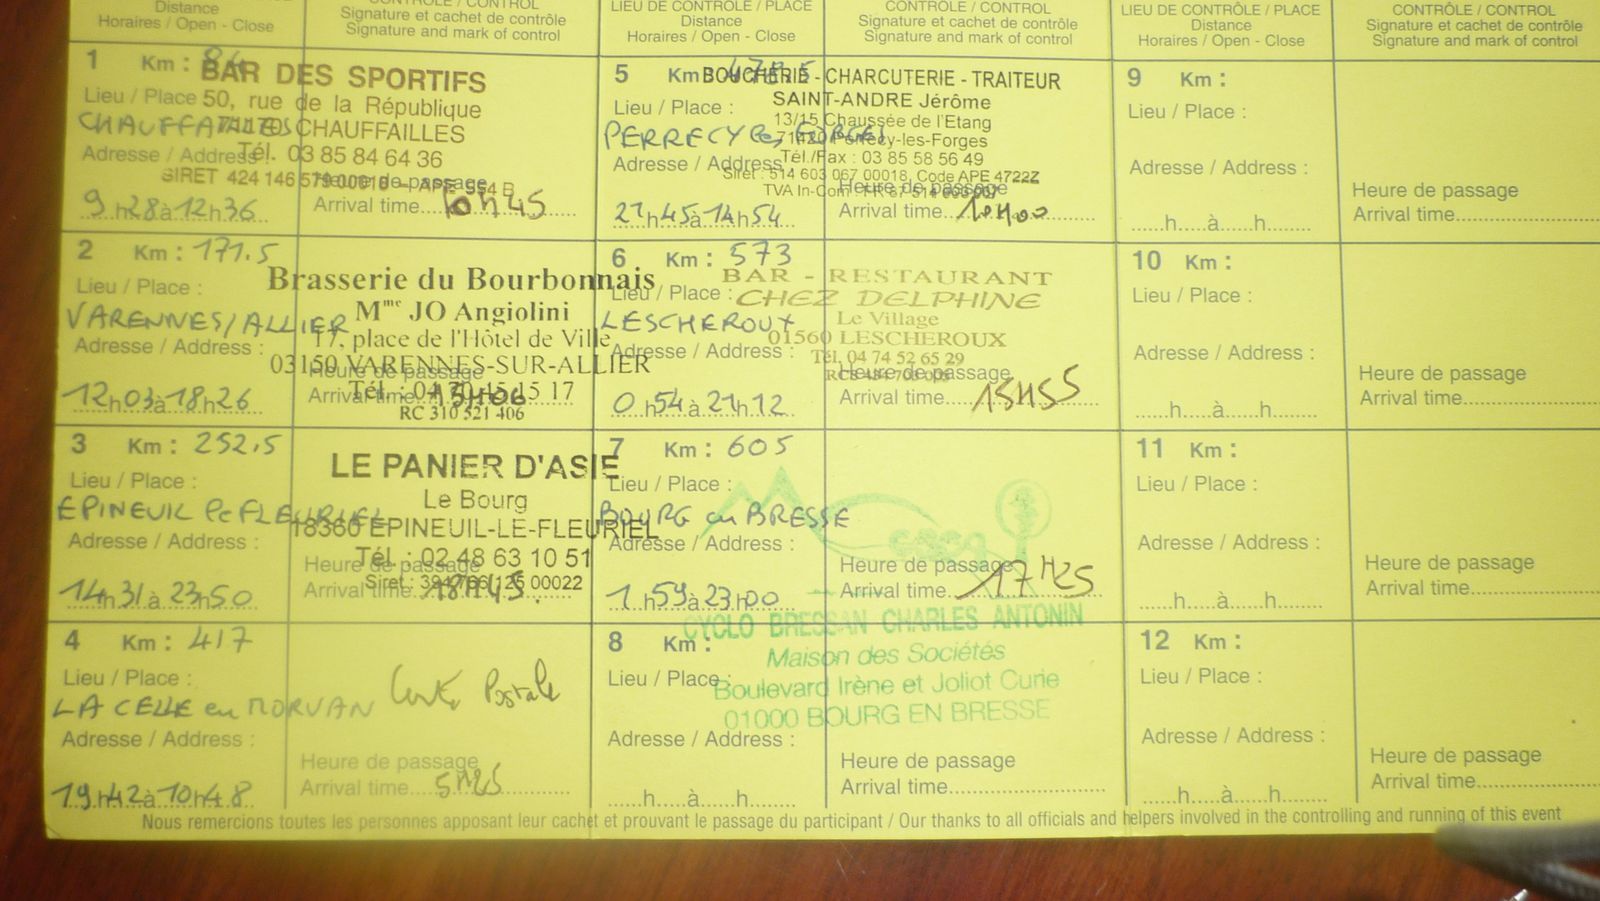 Distance
Horaires / Open - Close
CONTRÔLE / CONTROL
Signature et cachet de contrôle
Signature and mark of control
LIEU DE CONTRÔLE / PLACE
Distance
Horaires / Open - Close
CONTRÔLE / CONTROL
Signature et cachet de contrôle
Signature and mark of control
LIEU DE CONTRÔLE / PLACE
Distance
Horaires / Open - Close
CONTRÔLE / CONTROL
Signature et cachet de contrôle
Signature and mark of control
1 Km :
Lieu / Place
CHAUFFAILLES
Adresse / Address :
9h28à12h36
BAR DES SPORTIFS
50, rue de la République
71170 CHAUFFAILLES
Tél. 03 85 84 64 36
SIRET 424 146 579 00018 - APE 554 B
Heure de passage
Arrival time....10h45
2 Km : 171.5
Lieu / Place :
VARENNES/ALLIER
Adresse / Address :
12h03à18h26
Brasserie du Bourbonnais
Mme JO Angiolini
17, place de l'Hôtel de Ville
03150 VARENNES-SUR-ALLIER
Tél. : 04 70 45 15 17
RC 310 521 406
Heure de passage
Arrival time
3 Km : 252,5
Lieu / Place :
EPINEUIL le FLEURIEL
Adresse / Address :
14h31à23h50
LE PANIER D'ASIE
Le Bourg
18360 EPINEUIL-LE-FLEURIEL
Tél. : 02 48 63 10 51
Heure de passage
Arrival time...18H45.
4 Km : 417
Lieu / Place :
LA CELLE en MORVAN
Adresse / Address :
19h42à10h48
Carte Postale
Heure de passage
Arrival time....5H25
5 Km
Lieu / Place :
PERRECY les FORGES
Adresse / Address
21h45à14h54
BOUCHERIE - CHARCUTERIE - TRAITEUR
SAINT-ANDRE Jérôme
13/15 Chaussée de l'Etang
71420 Perrecy-les-Forges
Tél./Fax : 03 85 58 56 49
Siret : 514 603 067 00018, Code APE 4722Z
TVA In-Com
Heure de passage
Arrival time....10H00
6 Km : 573
Lieu / Place :
LESCHEROUX
Adresse / Address :
0h54à21h12
BAR - RESTAURANT
CHEZ DELPHINE
Le Village
01560 LESCHEROUX
Tél. 04 74 52 65 29
Heure de passage
Arrival time......15H55
7 Km : 605
Lieu / Place :
BOURG en BRESSE
Adresse / Address :
1h59à23h00
Heure de passage
Arrival time......17H25
CYCLO BRESSAN CHARLES ANTONIN
Maison des Sociétés
Boulevard Irène et Joliot Curie
01000 BOURG EN BRESSE
8 Km :
Lieu / Place :
Adresse / Address :
......h.....à.....h.......
Heure de passage
Arrival time
9 Km :
Lieu / Place :
Adresse / Address :
......h.....à.....h.......
Heure de passage
Arrival time
10 Km :
Lieu / Place :
Adresse / Address :
......h.....à.....h.......
Heure de passage
Arrival time
11 Km :
Lieu / Place :
Adresse / Address :
......h.....à.....h.......
Heure de passage
Arrival time
12 Km :
Lieu / Place :
Adresse / Address :
......h.....à.....h.......
Heure de passage
Arrival time
Nous remercions toutes les personnes apposant leur cachet et prouvant le passage du participant / Our thanks to all officials and helpers involved in the controlling and running of this event